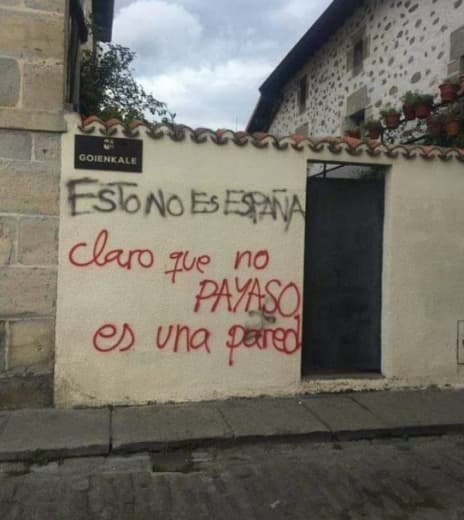 GOIENKALE
ESTO NO ES ESPAÑA
claro que no
PAYASO
es una pared